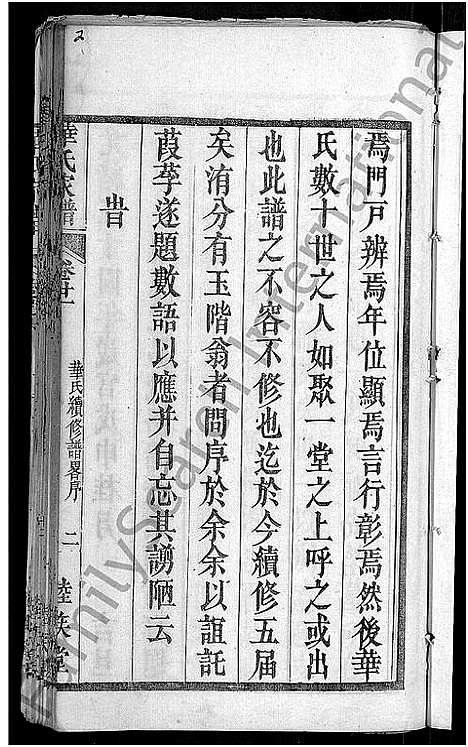 焉門戶辨焉年位顯焉言行彰焉然後華
氏數十世之人如聚一堂之上呼之或出
也此譜之不容不修也迄於今續修五届
矣洧分有玉階翁者問序於余余以誼託
葭莩遂題數語以應并自忘其謭陋云
旹
華氏家譜
卷廿一
華氏續修譜畧序
二
睦族堂
2
FamilySearch International